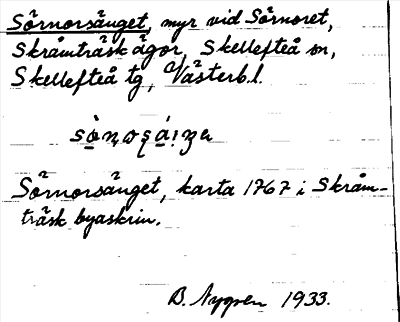 Sörnorsänget, myr vid Sörnoret,
Skråmträsk ägor, Skellefteå sn,
Skellefteå tg, Västerb.l.
Sörnorsänget, karta 1767 i Skråm-
träsk byaskrin.
B. Nygren 1933.